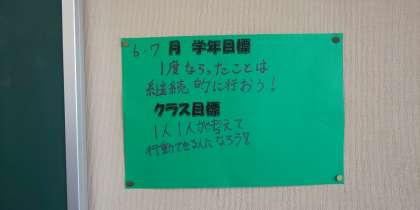 6-7月 学年目標
1度ならったことは
継続的に行おう!
クラス目標
1人1人が考えて
行動できる人になろう!!